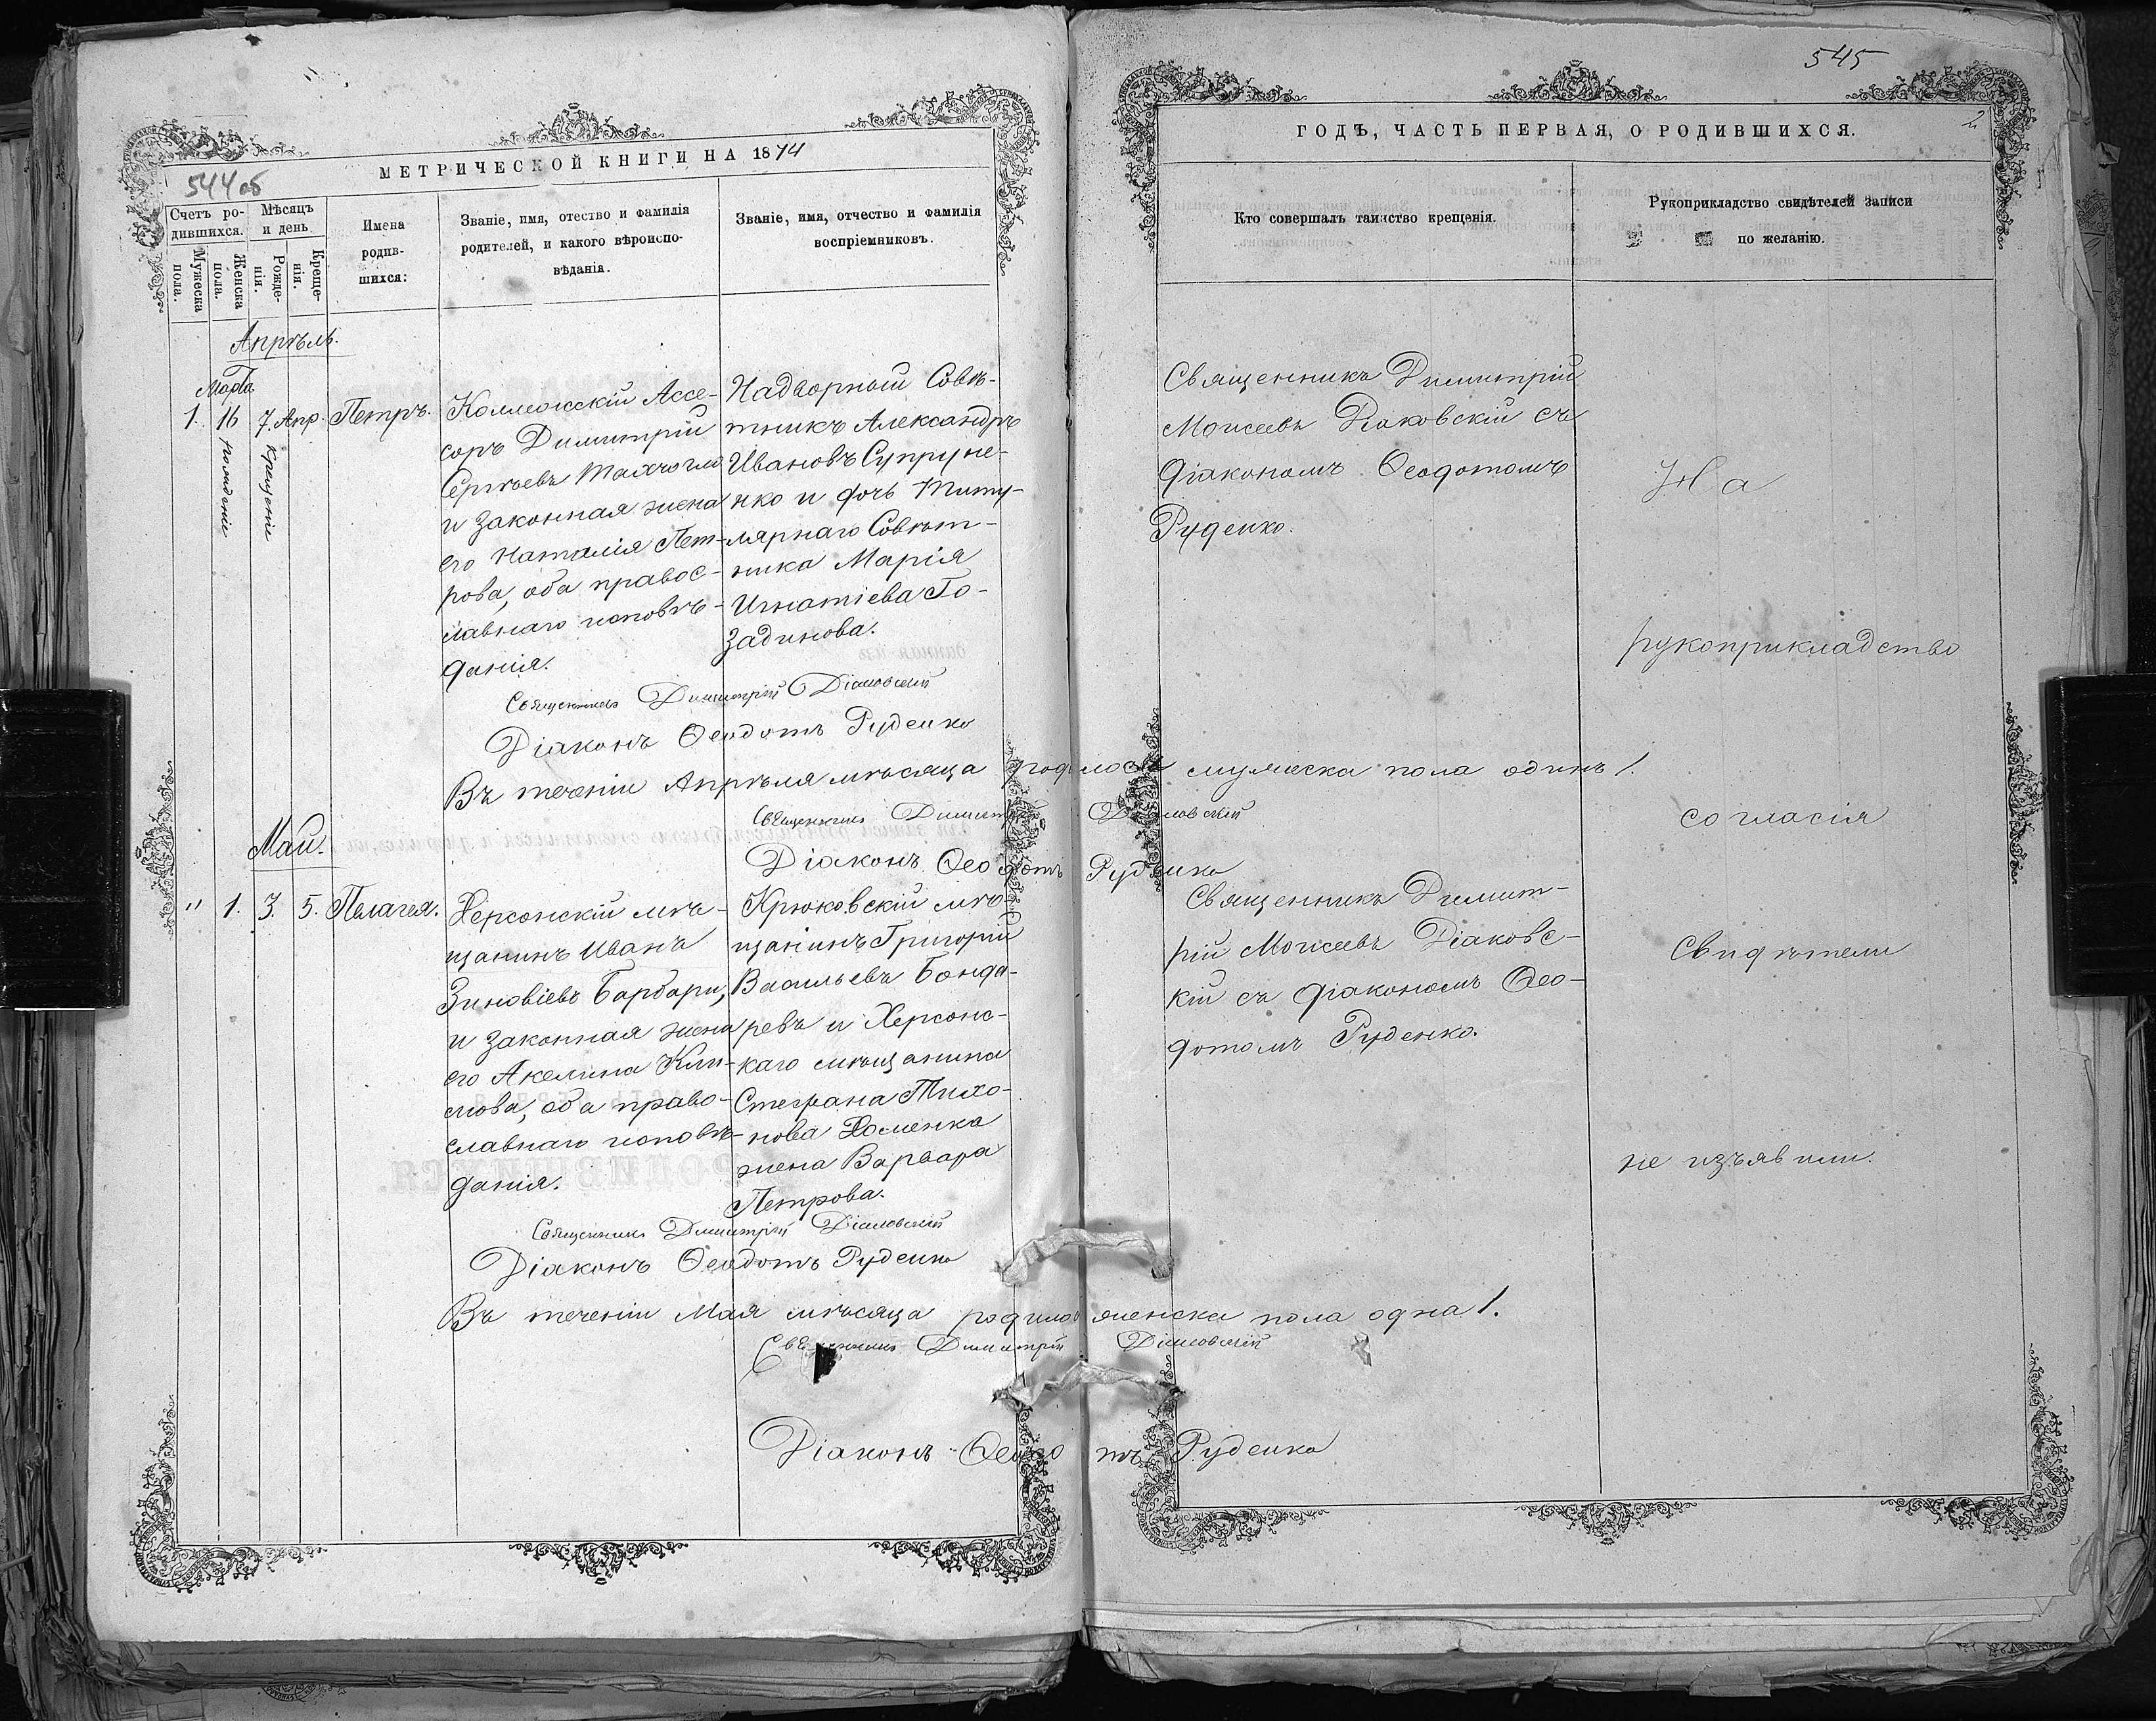 545
544 об
МЕТРИЧЕСКОЙ КНИГИ НА 1874
Счетъ ро-
дившихся.
Мужеска
пола.
Женска
пола.
Мѣсяцъ
и день
Рожде-
нія.
Креще-
нія.
Имена
родив-
шихся:
Званіе, имя, отество и фамилія
родителей, и какого вѣроиспо-
вѣданія.
Званіе, имя, отчество и фамилія
воспріемниковъ.
Апрѣль.
Марта
1. 16 7. Апр. Петръ.
рожденіе
крещеніе
Коллежскій Ассе-
соръ Димитрій
Сергѣевъ
и законная жена
его Наталія Пет-
рова, оба правос-
лавнаго исповѣ-
данія.
Надворный Совѣ-
тникъ Александръ
Ивановъ Супруне-
нко и дочь Титу-
лярнаго Совѣт-
ника Марія
Игнатіева Го-
задинова.
Священникъ Димитрій Діаковскій
Діаконъ Ѳеодотъ Руденко
Въ теченіи Апрѣля мѣсяца родилось мужеска пола одинъ 1.
Священникъ Димитрій Діаковскій
Діаконъ Ѳеодотъ Руденко
Май.
" 1. 3. 5. Пелагея.
Херсонскій мѣ-
щанинъ Иванъ
Зиновіевъ Барбари,
и законная жена
его Акелина Кли-
мова, оба право-
славнаго исповѣ-
данія.
Крюковскій мѣ-
щанинъ Григорій
Васильевъ Бонда-
ревъ и Херсонс-
каго мѣщанина
Стефана Тихо-
нова Хоменка
жена Варвара
Петрова.
Священникъ Димитрій Діаковскій
Діаконъ Ѳеодотъ Руденко
Въ теченіи Мая мѣсяца родилось женска пола одна 1.
Священникъ Димитрій Діаковскій
Діаконъ Ѳеодотъ Руденко
2
ГОДЪ, ЧАСТЬ ПЕРВАЯ, О РОДИВШИХСЯ.
Кто совершалъ таинство крещенія.
Рукоприкладство свидѣтелей записи
по желанію.
Священникъ Димитрій
Моисеевъ Діаковскій съ
діакономъ Ѳеодотомъ
Руденко.
Священникъ Димит-
рій Моисеевъ Діаковс-
кій съ діакономъ Ѳео-
дотомъ Руденко.
На
рукоприкладство
согласія
Свидѣтели
не изъявили.